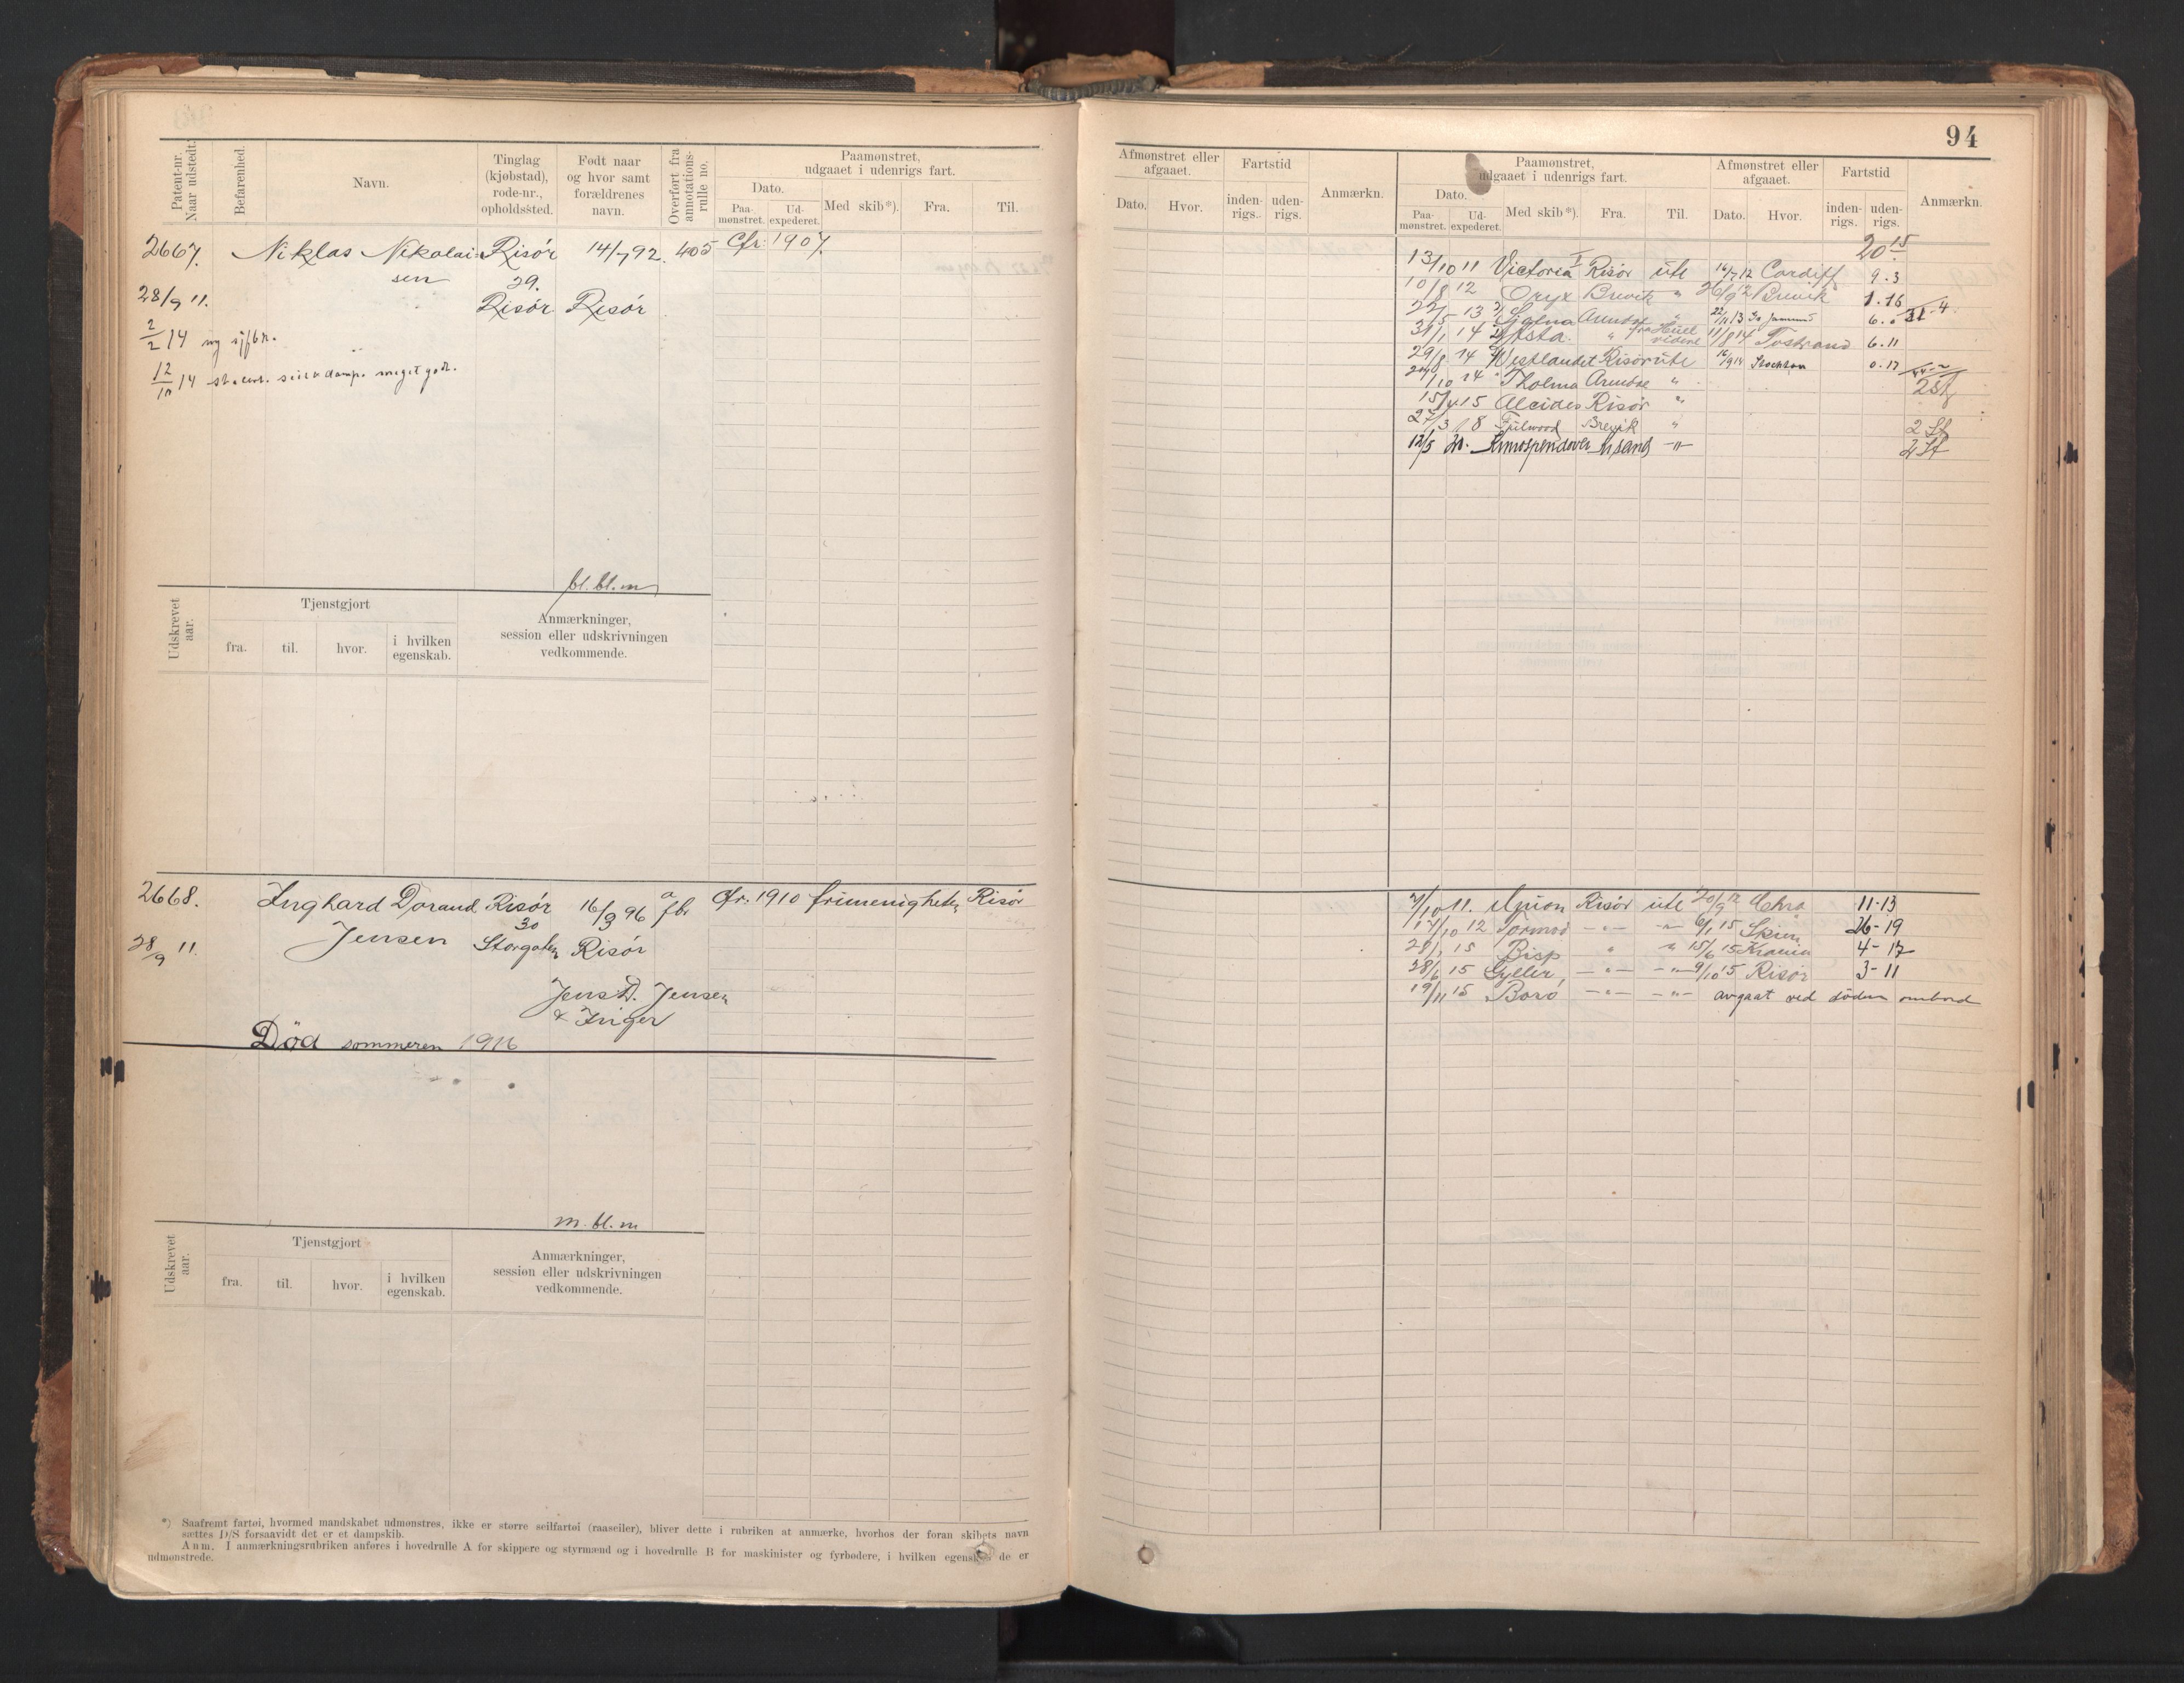 94
Patent-nr. Naar udstedt.
Befarenhed.
Navn.
Tinglag (kjøbstad), rode-nr., opholdssted.
Født naar og hvor samt forældrenes navn.
Overført fra annotations-rulle no.
Paamønstret, udgaaet i udenrigs fart.
Dato.
Paa-mønstret.
Ud-expederet.
Med skib*).
Fra.
Til.
2667. Niklas Nikolai- Risør 14/7 92. 405 Cfr: 1907.
sen 29.
28/9 11. Risør Risør
2/2 14 ny sjfbk.
12/10 14 seil & damp. meget godt.
bl. bl. m
Udskrevet aar.
Tjenstgjort
fra. til. hvor. i hvilken egenskab.
Anmærkninger, session eller udskrivningen vedkommende.
2668. Inghard Dorand Risør 16/3 96 a fbr Cfr: 1910 Risør
Jensen 30 Storgaten Risør
28/9 11.
Jens D. Jensen
& Inger
Død sommeren 1916
m. bl. m
Udskrevet aar.
Tjenstgjort
fra. til. hvor. i hvilken egenskab.
Anmærkninger, session eller udskrivningen vedkommende.
*) Saafremt fartøi, hvormed mandskabet udmønstres, ikke er større seilfartøi (raaseiler), bliver dette i rubriken at anmærke, hvorhos der foran skibets navn
sættes D/S forsaavidt det er et dampskib.
Anm. I anmærkningsrubriken anføres i hovedrulle A for skippere og styrmænd og i hovedrulle B for maskinister og fyrbødere, i hvilken egenskab de er
udmønstrede.
Afmønstret eller afgaaet.
Dato. Hvor.
Fartstid
inden-rigs. uden-rigs.
Anmærkn.
Paamønstret, udgaaet i udenrigs fart.
Dato.
Paa-mønstret. Ud-expederet.
Med skib*). Fra. Til.
Afmønstret eller afgaaet.
Dato. Hvor.
Fartstid
inden-rigs. uden-rigs.
Anmærkn.
20.15
13/10 11 Victoria I Risør ute 16/7 12 Cardiff 9.3
10/8 12 Oryx Brevik " 26/9 12 Brevik 1.16
22/5 13 Arendal " 22/11 13 6.0
31/1 14 Asta " 11/8 14 Tostrand 6.11
29/8 14 Vestlandet Risør ute 16/9 14 0.17
/10 14 Tholma Arendal " 2 St
15/4 15 Alcides Risør "
27/3 18 Fulwood Brevik " 2 St
12/5 20. -"- 2 St
7/10 11. Risør ute 20/9 12 11-13
/10 12 Tormod -"- -"- 6/1 15 Skien 26-19
28/1 15 Bisp " " 15/6 15 4-17
28/6 15 Gyller -"- -"- 9/10 15 Risør 3-11
19/11 15 Borø -"- -"- avgaat ved døden ombord